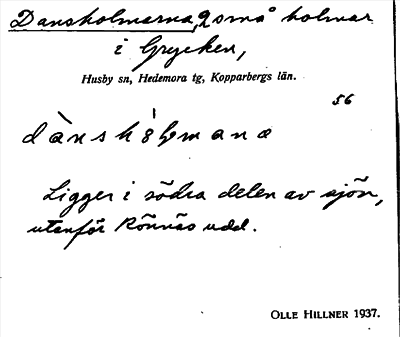 Dansholmarna, 2 små holmar
i Grycken,
Husby sn, Hedemora tg, Kopparbergs län.
56
dànshól̥mana
Ligger i södra delen av sjön,
utanför Rönnäs udd.
OLLE HILLNER 1937.